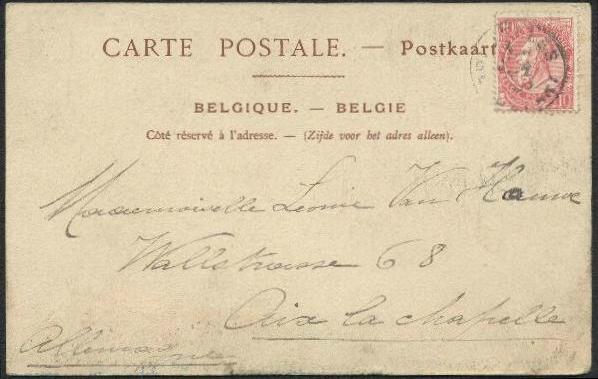 CARTE POSTALE. — Postkaart
BELGIQUE. — BELGIE
Côté réservé à l'adresse. — (Zijde voor het adres alleen).
10
Mademoiselle Léonie Van
Wallstrasse 68
Aix la chapelle
Allemagne